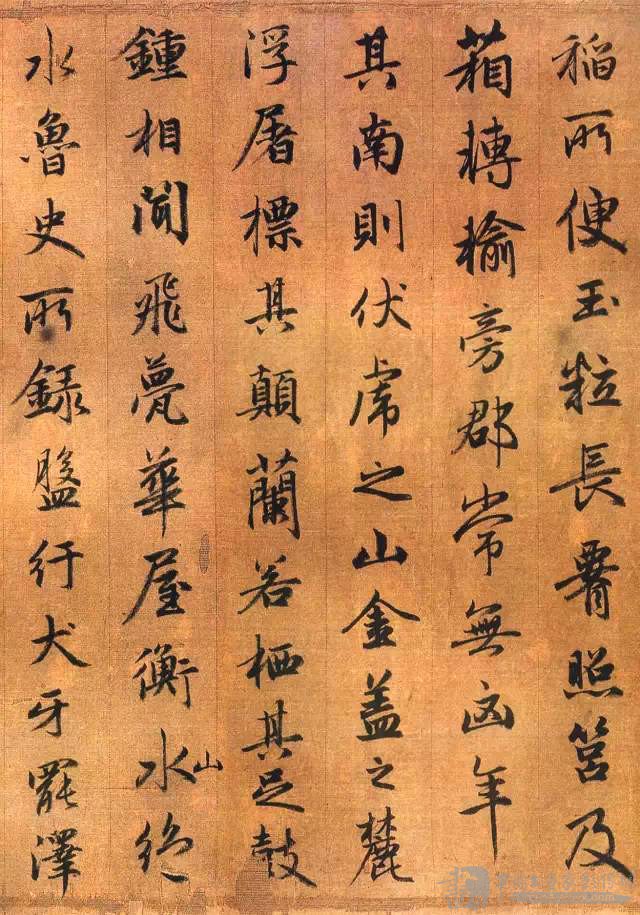 稻所便玉粒長腰照筥及
箱轉輸旁郡常無凶年
其南則伏虎之山金蓋之麓
浮屠標其顛蘭若栖其足鼓
鍾相聞飛甍華屋衡水山絕
水魯史所録盤紆犬牙罷澤